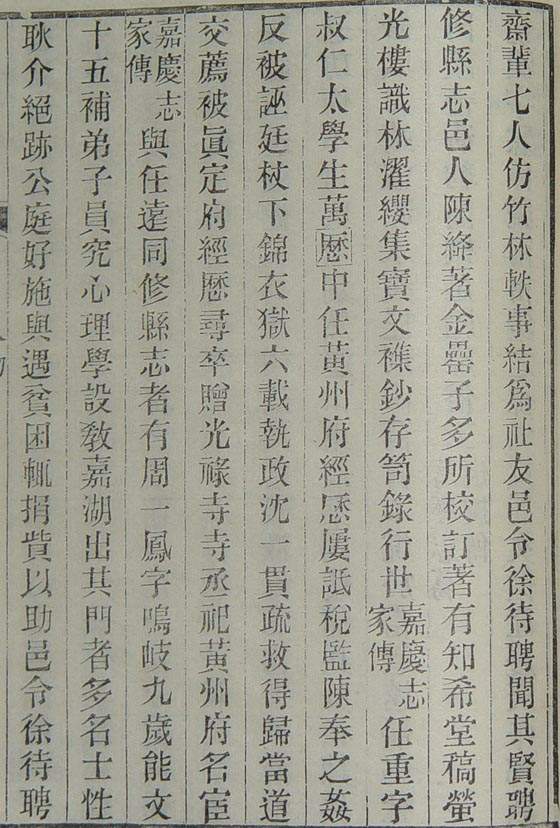 齋輩七人仿竹林軼事結爲社友邑令徐待聘聞其賢聘
修縣志邑人陳絳著金罍子多所校訂著有知希堂稿螢
光樓識林濯纓集寶文襍鈔存笥錄行世嘉慶志家傳任重字
叔仁太學生萬厯中任黃州府經厯屢詆稅監陳奉之姦
反被誣廷杖下錦衣獄六載執政沈一貫疏救得歸當道
交薦被眞定府經厯尋卒贈光祿寺寺丞祀黃州府名宦
嘉慶志家傳與任遠同修縣志者有周一鳳字鳴岐九歲能文
十五補弟子員究心理學設敎嘉湖出其門者多名士性
耿介絕跡公庭好施與遇貧困輒捐貲以助邑令徐待聘